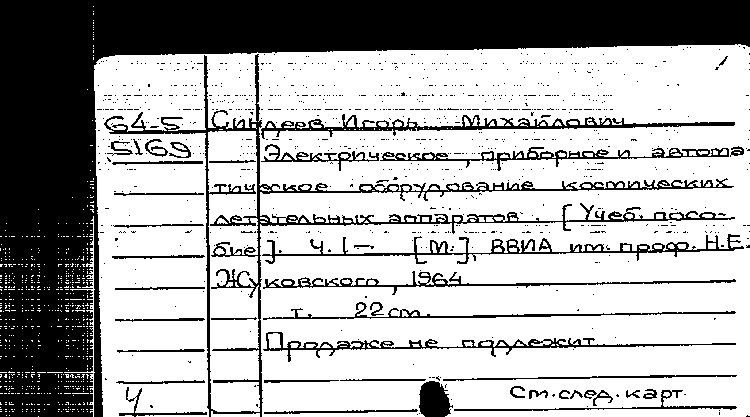 64-5 Синдеев, Игорь Михайлович
5169 Электрическое, приборное и автома-
тическое оборудование космических
летательных аппаратов. [Учеб. посо-
бие]. Ч. I–. [М.], ВВИА им. проф. Н.Е.
Жуковского, 1964.
т. 22 см.
Продаже не подлежит
Ч. См. след. карт.